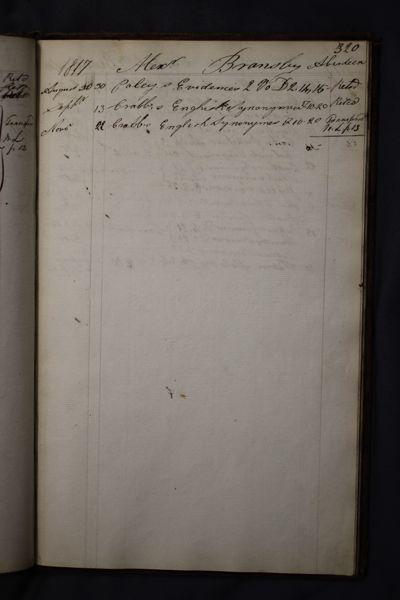 320
1817 Alexr Bransby Aberdeen
August 30 30 Paley's Evidences 2 Vo D2.14,15 Retd
Septr 13 Crabb's English Synonymes 10.20 Retd
Novr 21 Crabbs English Synonymes 10.20 Transferd
N.L. p.13
Retd
Transferd
N.L.
p. 12